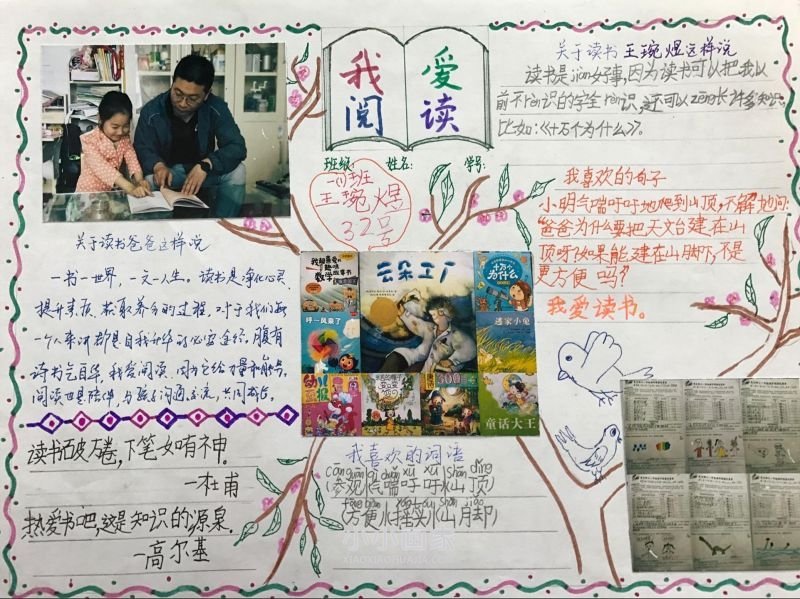 我爱
阅读
班级：　姓名：　学号：
一(1)班
王琬煜
32号
关于读书王琬煜这样说
读书是jiàn好事，因为读书可以把我以
前不rèn识的字全rèn识，还可以zēng长许多知识。
比如：《十万个为什么》。
我喜欢的句子
小明气喘吁吁地爬到山顶，不解地问：
“爸爸为什么要把天文台建在山
顶呀？如果能建在山脚下，不是
更方便吗？
我爱读书。
关于读书爸爸这样说
一书一世界，一文一人生。读书是净化心灵、
提升素质、获取养分的过程，对于我们每
一个人来说都是自我升华的必宝途径，腹有
诗书气自华，我爱阅读，因为它给力量和
阅读世界陪伴，与孩子沟通交流，共同成长。
读书破万卷，下笔如有神。
—杜甫
热爱书吧，这是知识的源泉。
—高尔基
云朵工厂
十万个
为什么
数学故事书
呼—风来了
逃家小兔
幼儿
画报
300
童话大王
我喜欢的词语
cān guān qì chuǎn xū xū shān dǐng
（参观）（气喘吁吁）（山顶）
（方便）（摇头）（山脚）
小小画家
XIAOXIAOHUAJIA.COM